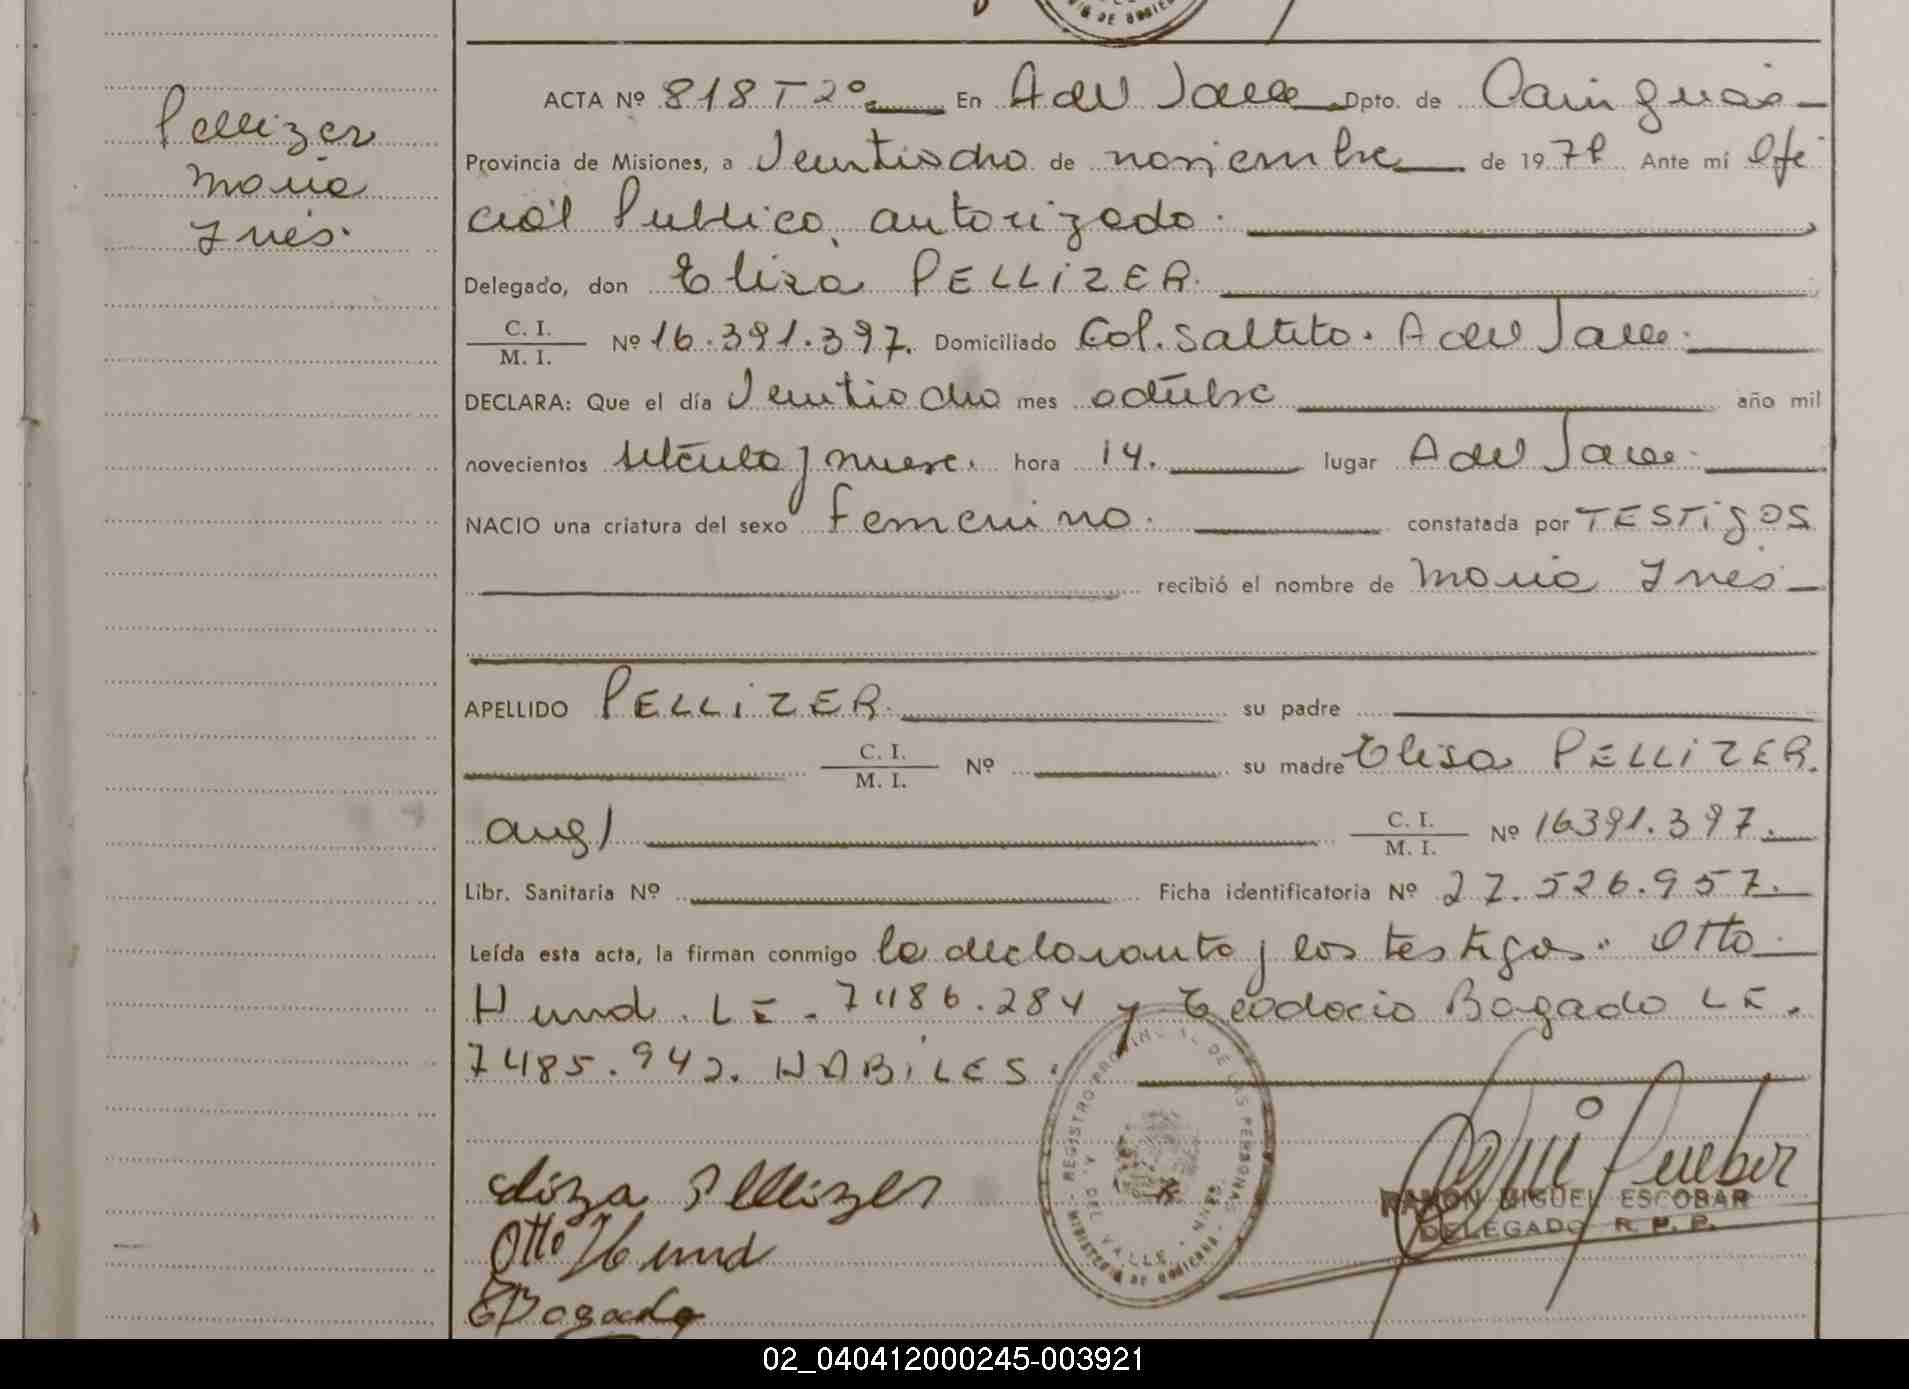 Pellizer
Maria
Inés.
DE GOBIER
ACTA Nº 818 T 2º En A del Valle Dpto. de Cainguás
Provincia de Misiones, a Veintiocho de noviembre de 1979 Ante mí Ofi
cial Publico, autorizado.
Delegado, don Eliza PELLIZER.
C. I.
M. I.
Nº 16.391.397. Domiciliado Col. Saltito. A del Valle.
DECLARA: Que el día Veintiocho mes octubre año mil
novecientos setenta y nueve. hora 14. lugar A del Valle.
NACIO una criatura del sexo femenino. constatada por TESTIGOS
recibió el nombre de Maria Inés
APELLIDO PELLIZER. su padre
C. I.
M. I.
Nº su madre Elisa PELLIZER.
arg/ C. I.
M. I.
Nº 16391.397.
Libr. Sanitaria Nº Ficha identificatoria Nº 27.526.957.
Leída esta acta, la firman conmigo la declarante y los testigos. Otto
Hund. LE. 7486.284 y Teodocio Bogado LE.
7485.942. HABILES.
REGISTRO PROVINCIAL DE LAS PERSONAS
DEL VALLE - MNES.
MINISTERIO DE GOBIERNO
Eliza Pellizer
Otto Hund
RAMON MIGUEL ESCOBAR
DELEGADO R. P. P.
TBogado
02_040412000245-003921